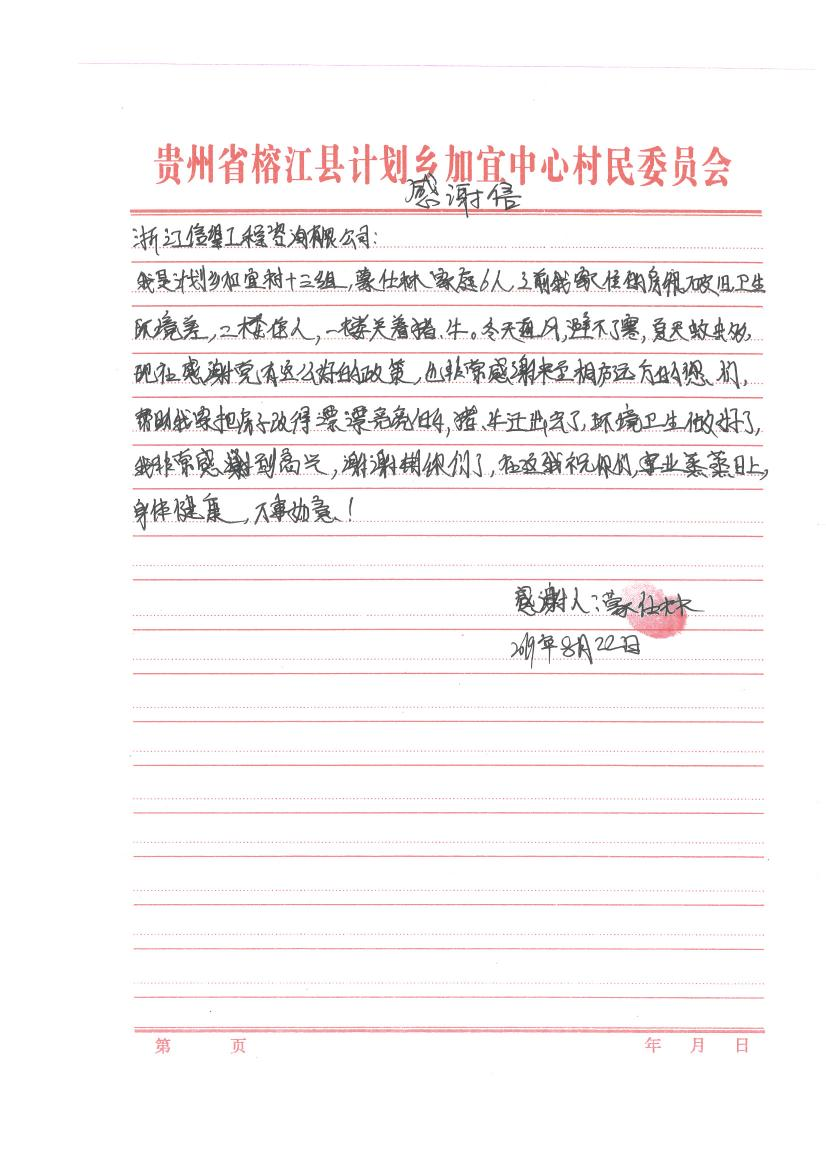 贵州省榕江县计划乡加宜中心村民委员会
感谢信
浙江信望工程咨询有限公司:
我是计划乡加宜村十三组,蒙仕林家庭6人,之前我家住的房很破旧卫生
环境差,二楼住人,一楼关着猪、牛。冬天透风,避不了寒,夏天蚊虫多,
现在感谢党有这么好的政策,也非常感谢来至相方远方的您们,
帮助我家把房子改得漂漂亮亮的,猪、牛迁出去了,环境卫生做好了,
我非常感谢到高兴,谢谢你们了,在这我祝你们,事业蒸蒸日上,
身体健康,万事如意!
感谢人:蒙仕林
2019年8月22日
第 页 年 月 日